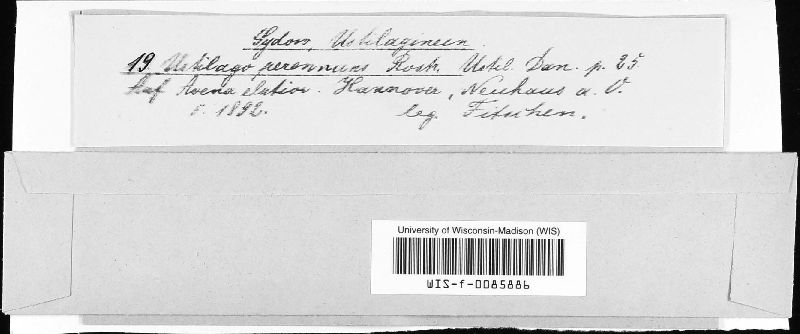 Sydow, Ustilagineen
19. Ustilago perennans Rostr. Ustil. Dan. p. 25
Auf Avena elatior. Hannover, Neuhaus a. O.
5. 1892. leg. Fitschen.
University of Wisconsin-Madison (WIS)
WIS-f-0085886